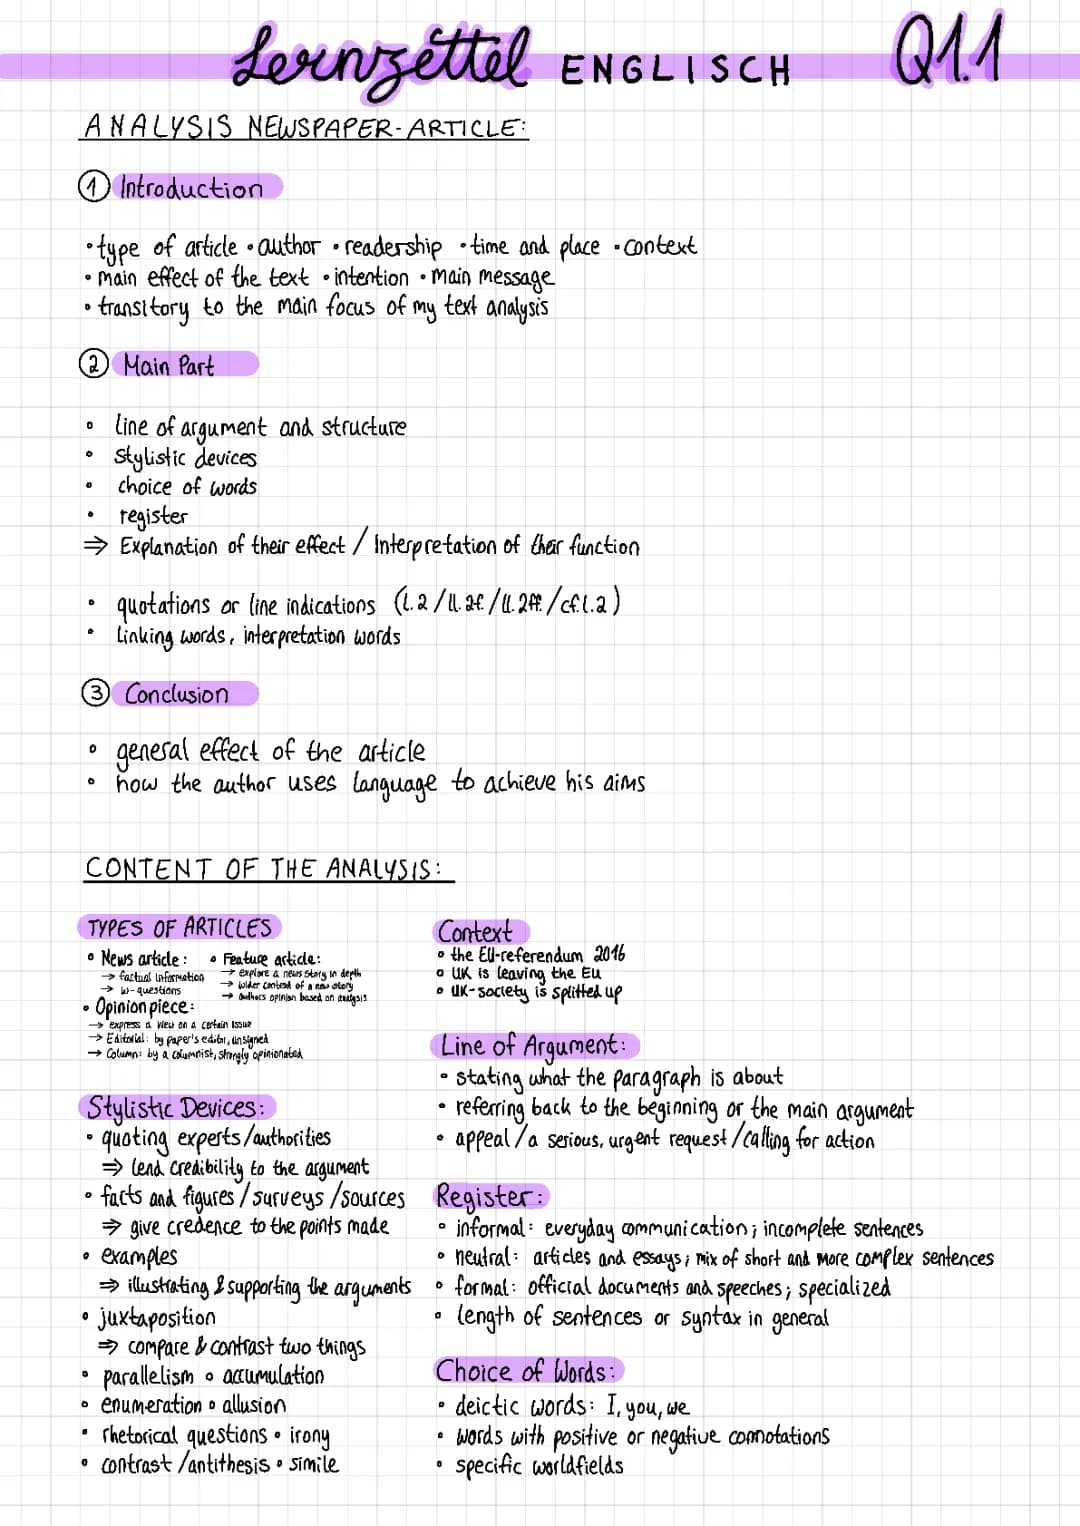 Lernzettel ENGLISCH Q1.1
ANALYSIS NEWSPAPER-ARTICLE:
① Introduction
• type of article • author • readership • time and place • context
• main effect of the text • intention • main message
• transitory to the main focus of my text analysis
② Main Part
• line of argument and structure
• stylistic devices
• choice of words
• register
⇒ Explanation of their effect / Interpretation of their function
• quotations or line indications (l.2/ll.2f./ll.2ff./cf.l.2)
• linking words, interpretation words
③ Conclusion
• general effect of the article
• how the author uses language to achieve his aims
CONTENT OF THE ANALYSIS:
TYPES OF ARTICLES
• News article:
→ factual information
→ w-questions
• Feature article:
→ explore a news story in depth
→ wider context of a new story
→ authors opinion based on analysis
• Opinion piece:
→ express a view on a certain issue
→ Editorial: by paper's editor, unsigned
→ Column: by a columnist, strongly opinionated
Stylistic Devices:
• quoting experts/authorities
⇒ lend credibility to the argument
• facts and figures / surveys / sources
⇒ give credence to the points made
• examples
⇒ illustrating & supporting the arguments
• juxtaposition
⇒ compare & contrast two things
• parallelism • accumulation
• enumeration • allusion
• rhetorical questions • irony
• contrast /antithesis • simile
Context
• the EU-referendum 2016
• UK is leaving the EU
• UK-society is splitted up
Line of Argument:
• stating what the paragraph is about
• referring back to the beginning or the main argument
• appeal /a serious, urgent request /calling for action
Register:
• informal: everyday communication; incomplete sentences
• neutral: articles and essays; mix of short and more complex sentences
• formal: official documents and speeches; specialized
• length of sentences or syntax in general
Choice of Words:
• deictic words: I, you, we
• words with positive or negative connotations
• specific worldfields